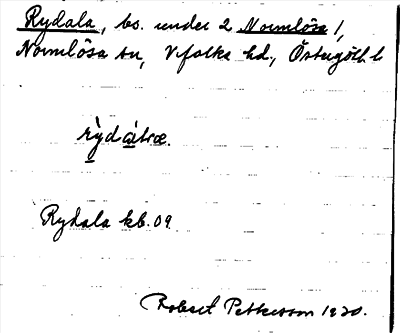 Rydala, bs. under 2 Normlösa 1,
Normlösa sn, Vifolka hd, Östergötl. l.
Rydala kb. 09
Robert Pettersson 1920.